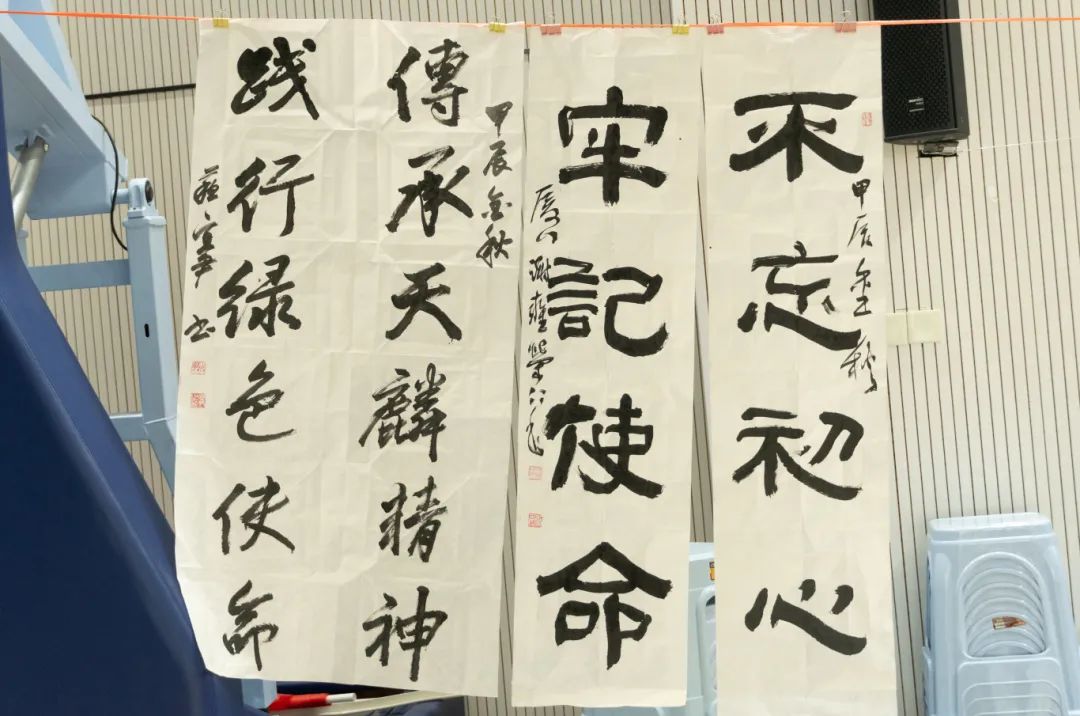 甲辰金秋
不忘初心
牢記使命
甲辰金秋
傳承天麟精神
践行绿色使命
书